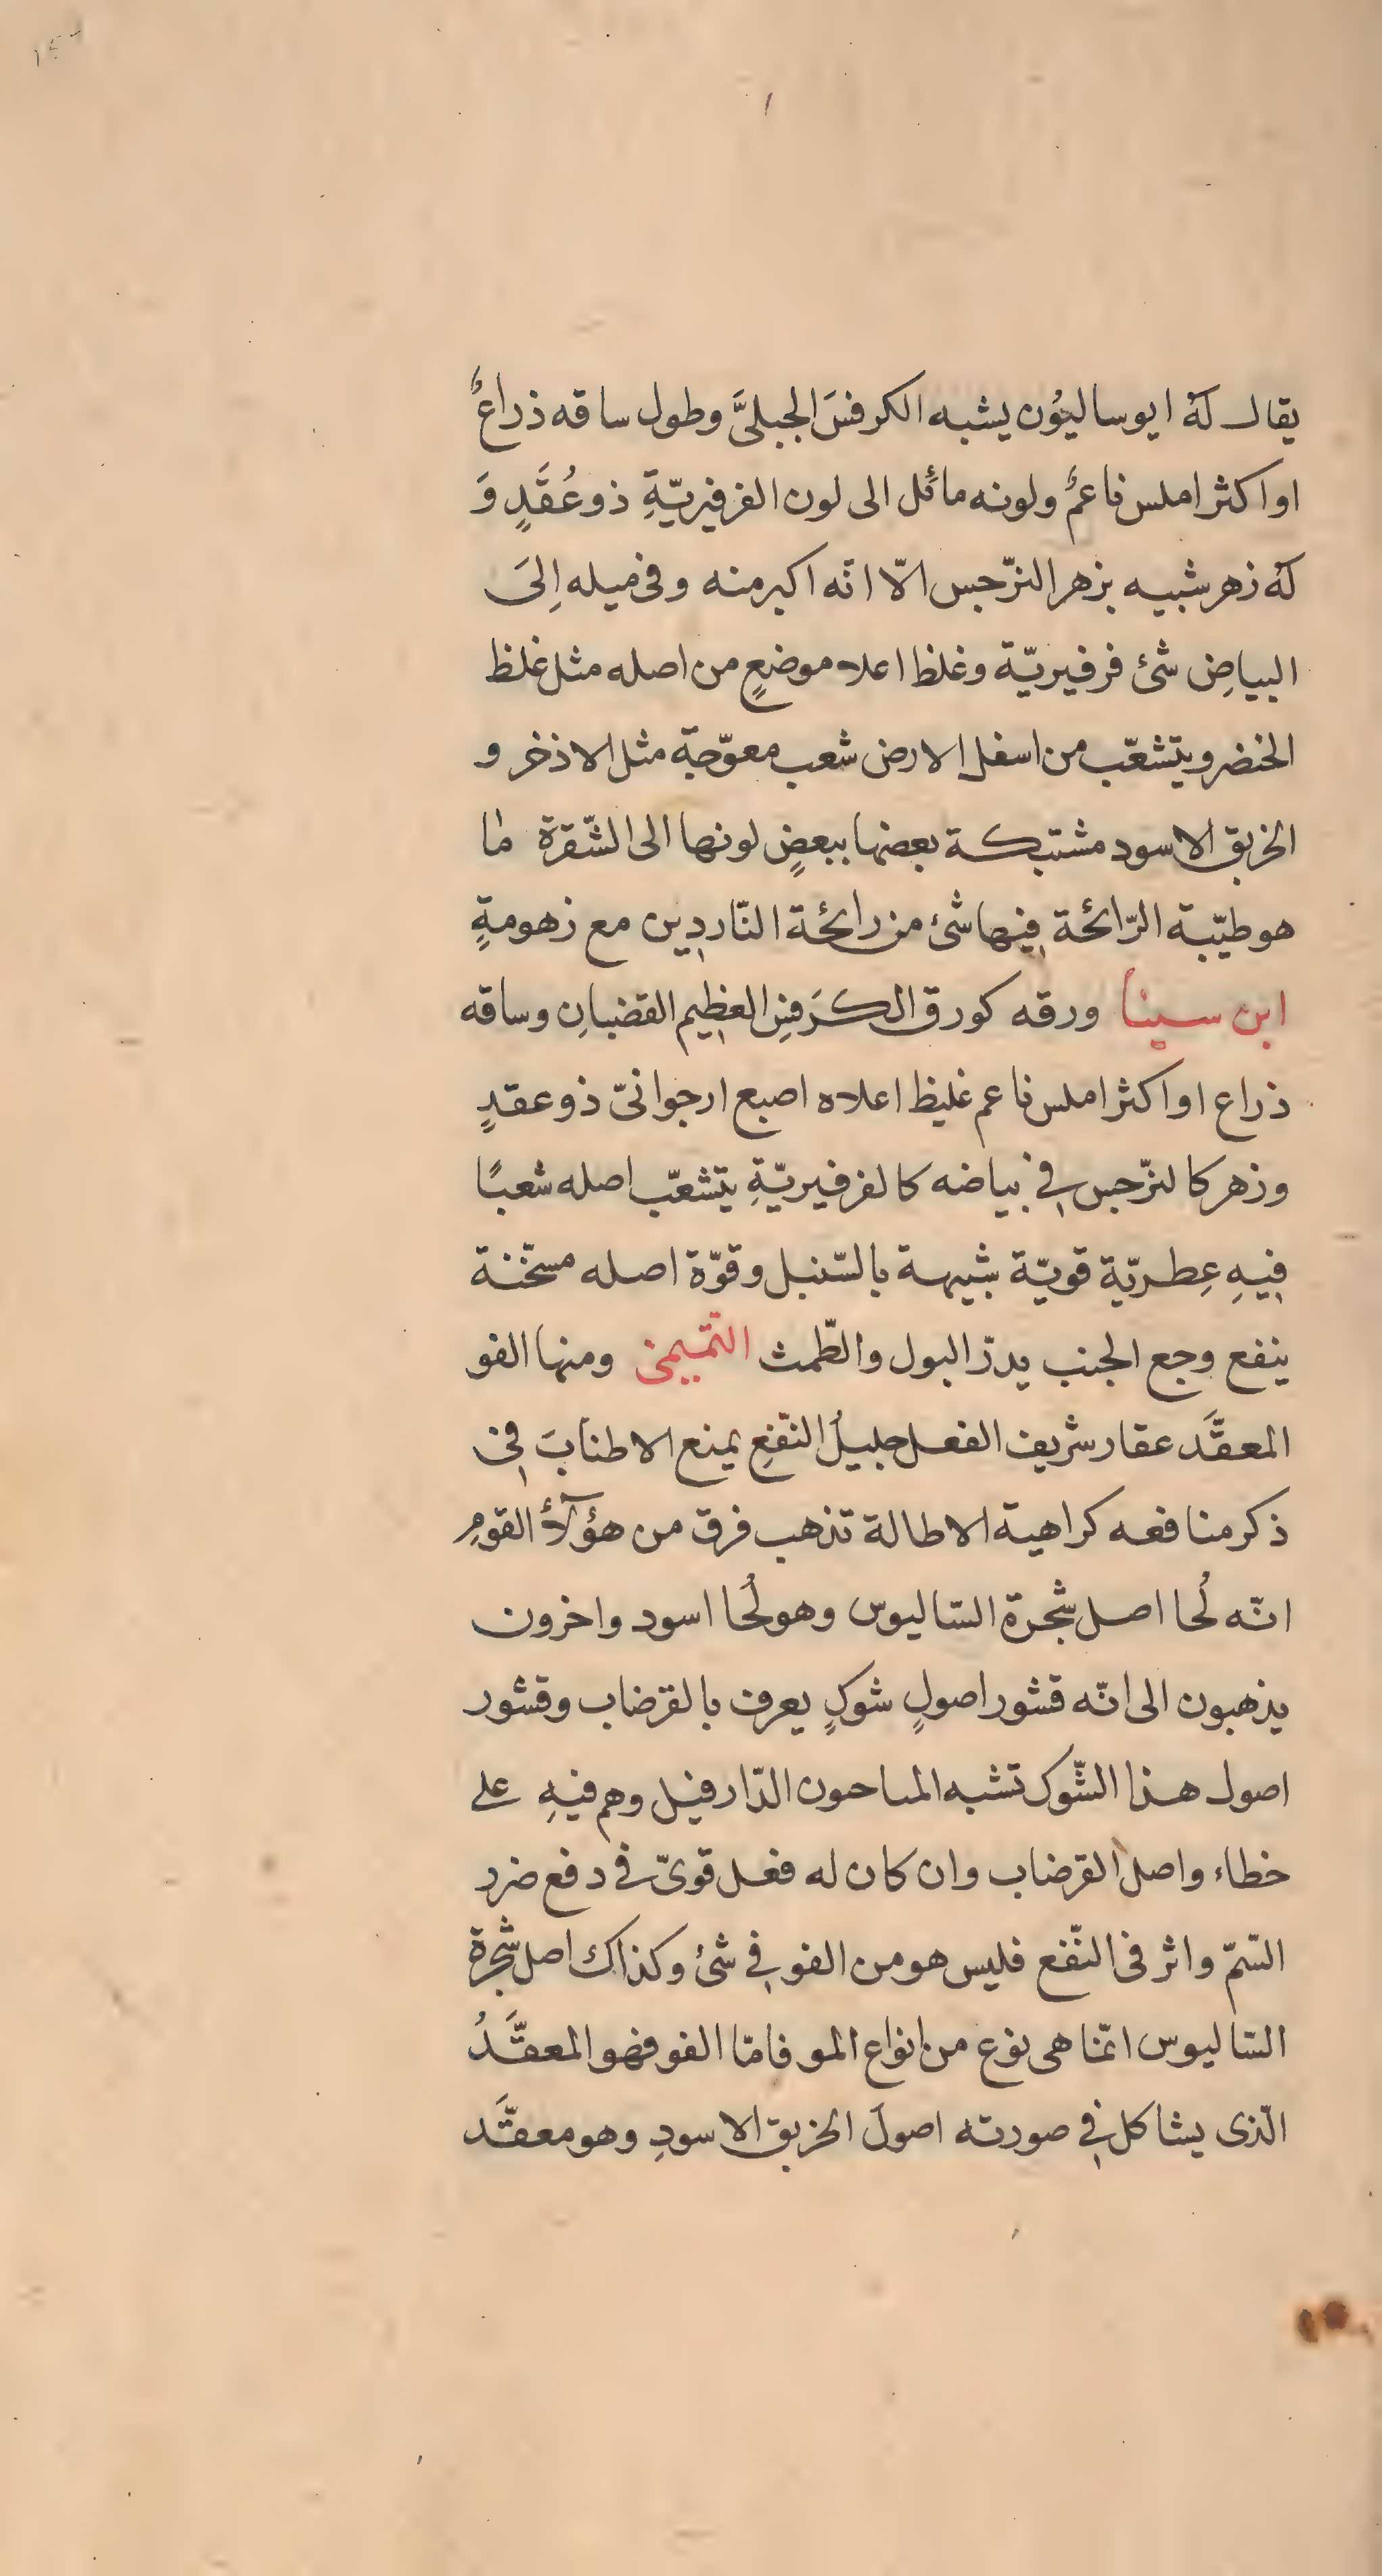 يقال له ايوساليُون يشبه الكرفسَ الجبلىَّ وطول ساقه ذراعٌ
او اكثر املس ناعمٌ ولونه مائل الى لون الفرفيريّةِ ذو عُقَدٍ وَ
له زهر شبيه بزهر النرّجس الّا انّه اكبر منه وفى ميله اِلىَ
البياضِ شئ فرفيريّة وغلظ اعلاه موضعٍ من اصله مثل غلظ
الخنضر ويتشعّب من اسفل الارض شعب معوّجة مثل الاذخر و
الخربق الاسود مشتبكة بعضها ببعضٍ لونها الى الشّقرة ما
هو طيّبة الرّائحة فيها شئ من رائحة النّاردِين مع زهومةٍ
ابن سينا ورقه كورق الكَرَفسِ العظِيم القضبانِ وساقه
ذراع او اكثر املس ناعم غليظ اعلاه اصبع ارجوانىّ ذو عقدٍ
وزهر كالنرّجس فِي بياضه كالفرفيريّةِ يتشعّب اصله شعبًا
فِيهِ عِطريّة قويّة شبيهة بالسّنبل وقوّة اصله مسخّنة
ينفع وجع الجنب يدرّ البول والطّمث التّميمىّ ومنها الفو
المعقَّد عقار شريف الفعل جليلُ النّفعِ يمنع الاطنابَ فِى
ذكر منافعه كراهية الاطالة تذهب فرق من هؤلآءُ القومِ
انّه لُحا اصل شجرة السّاليوس وهو لُحا اسود واخرون
يذهبون الى انّه قشور اصولٍ شوكٍ يعرف بالقرضاب وقشور
اصول هذا الشّوك تشبه الدّارفيل وهم فيهِ على
خطاء واصل القرضاب وان كان له فعل قوىّ فى دفع ضرر
السّمّ واثر فى النّفع فليس هو من الفو فِي شئ وكذاك اصل شجرة
السّاليوس انّما هى نوع من انواع المو فامّا الفو فهو المعقَّدُ
الّذى يشاكل فِي صورته اصولَ الخربق الاسودِ وهو معقَّد